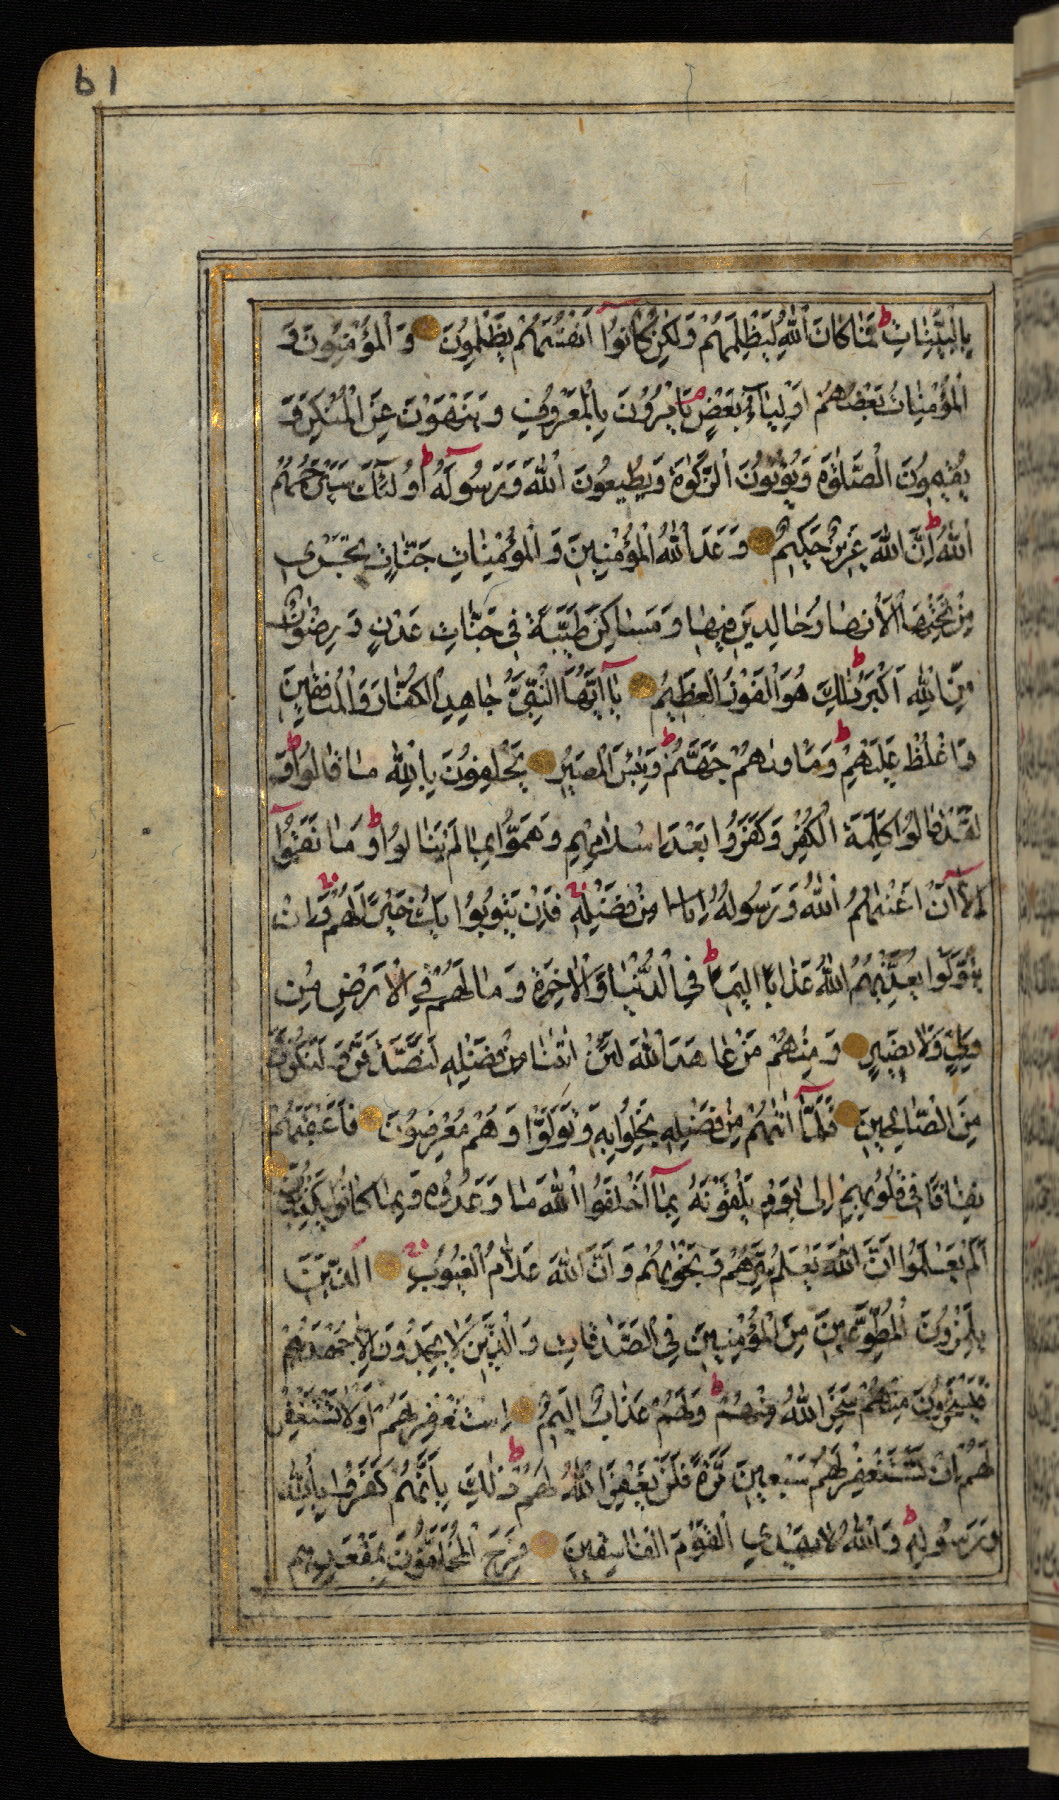 61
بِالْبَيِّنَاتِ ط فَمَا كَانَ اللّٰهُ لِيَظْلِمَهُمْ وَلٰكِنْ كَانُوٓا اَنْفُسَهُمْ يَظْلِمُونَ وَ الْمُؤْمِنُونَ وَ
الْمُؤْمِنَاتُ بَعْضُهُمْ اَوْلِيَآءُ بَعْضٍ يَأْمُرُونَ بِالْمَعْرُوفِ وَ يَنْهَوْنَ عَنِ الْمُنْكَرِ وَ
يُقِيمُونَ الصَّلٰوةَ وَيُؤْتُونَ الزَّكٰوةَ وَيُطِيعُونَ اللّٰهَ وَ رَسُولَهُ ط اُولٰٓئِكَ سَيَرْحَمُهُمُ
اللّٰهُ ط اِنَّ اللّٰهَ عَزِيزٌ حَكِيمٌ وَعَدَ اللّٰهُ الْمُؤْمِنِينَ وَ الْمُؤْمِنَاتِ جَنَّاتٍ تَجْرِي
مِنْ تَحْتِهَا الْاَنْهَارُ خَالِدِينَ فِيهَا وَ مَسَاكِنَ طَيِّبَةً فِي جَنَّاتِ عَدْنٍ وَ رِضْوَانٌ
مِنَ اللّٰهِ اَكْبَرُ ط ذٰلِكَ هُوَ الْفَوْزُ الْعَظِيمُ يَآ اَيُّهَا النَّبِيُّ جَاهِدِ الْكُفَّارَ وَ الْمُنَافِقِينَ
وَ اغْلُظْ عَلَيْهِمْ ط وَ مَأْوٰىهُمْ جَهَنَّمُ ط وَ بِئْسَ الْمَصِيرُ يَحْلِفُونَ بِاللّٰهِ مَا قَالُوا ط وَ
لَقَدْ قَالُوا كَلِمَةَ الْكُفْرِ وَ كَفَرُوا بَعْدَ اِسْلَامِهِمْ وَ هَمُّوا بِمَا لَمْ يَنَالُوا ط وَ مَا نَقَمُوٓا
اِلَّآ اَنْ اَغْنٰىهُمُ اللّٰهُ وَ رَسُولُهُ مِنْ فَضْلِهِ فَاِنْ يَتُوبُوا يَكُ خَيْرًا لَهُمْ وَ اِنْ
يَتَوَلَّوْا يُعَذِّبْهُمُ اللّٰهُ عَذَابًا اَلِيمًا ط فِي الدُّنْيَا وَ الْاٰخِرَةِ وَ مَا لَهُمْ فِي الْاَرْضِ مِنْ
وَلِيٍّ وَلَا نَصِيرٍ وَ مِنْهُمْ مَنْ عَاهَدَ اللّٰهَ لَئِنْ اٰتٰىنَا مِنْ فَضْلِهِ لَنَصَّدَّقَنَّ وَ لَنَكُونَنَّ
مِنَ الصَّالِحِينَ فَلَمَّآ اٰتٰىهُمْ مِنْ فَضْلِهِ بَخِلُوا بِهِ وَ تَوَلَّوْا وَ هُمْ مُعْرِضُونَ فَاَعْقَبَهُمْ
نِفَاقًا فِي قُلُوبِهِمْ اِلٰى يَوْمِ يَلْقَوْنَهُ بِمَآ اَخْلَفُوا اللّٰهَ مَا وَعَدُوهُ وَ بِمَا كَانُوا يَكْذِبُونَ
اَلَمْ يَعْلَمُوا اَنَّ اللّٰهَ يَعْلَمُ سِرَّهُمْ وَ نَجْوٰىهُمْ وَ اَنَّ اللّٰهَ عَلَّامُ الْغُيُوبِ اَلَّذِينَ
يَلْمِزُونَ الْمُطَّوِّعِينَ مِنَ الْمُؤْمِنِينَ فِي الصَّدَقَاتِ وَ الَّذِينَ لَا يَجِدُونَ اِلَّا جُهْدَهُمْ
فَيَسْخَرُونَ مِنْهُمْ سَخِرَ اللّٰهُ مِنْهُمْ ط وَ لَهُمْ عَذَابٌ اَلِيمٌ اِسْتَغْفِرْ لَهُمْ اَوْ لَا تَسْتَغْفِرْ
لَهُمْ اِنْ تَسْتَغْفِرْ لَهُمْ سَبْعِينَ مَرَّةً فَلَنْ يَغْفِرَ اللّٰهُ لَهُمْ ط ذٰلِكَ بِاَنَّهُمْ كَفَرُوا بِاللّٰهِ
وَ رَسُولِهِ ط وَ اللّٰهُ لَا يَهْدِي الْقَوْمَ الْفَاسِقِينَ فَرِحَ الْمُخَلَّفُونَ بِمَقْعَدِهِمْ